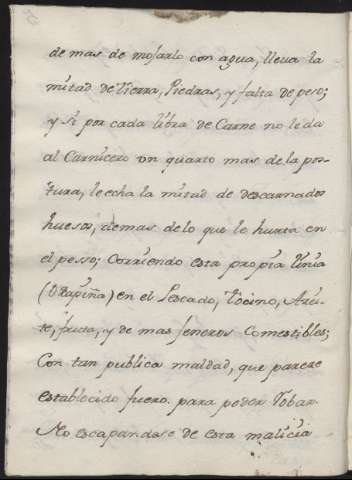 de mas de mojarlo con agua, lleva la
mitad de tierra, Piedras, y falta de peso;
y si por cada libra de Carne no le da
al Carnicero un quarto mas de la pos-
tura, le echa la mitad de descarnados
huesos, demas de lo que le hurta en
el pesso; Corriendo esta propia linia
(o Rapiña) en el Pescado, tocino, Azei-
te, fruta, y de mas generos Comestibles;
Con tan publica maldad, que parece
establecido fuero para poder Robar.
No escapandose de esta malicia